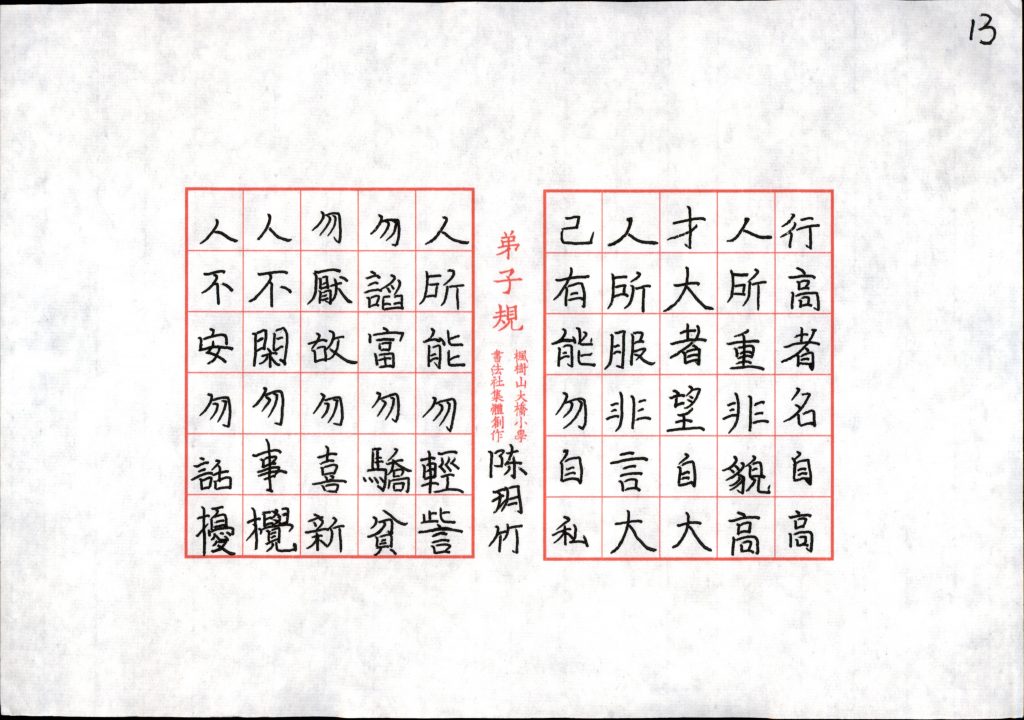 13
行高者名自高
人所重非貌高
才大者望自大
人所服非言大
己有能勿自私
弟子規
楓樹山大橋小學
書法社集體創作
陈玥竹
人所能勿輕訾
勿謟富勿驕貧
勿厭故勿喜新
人不閑勿事欖
人不安勿話擾